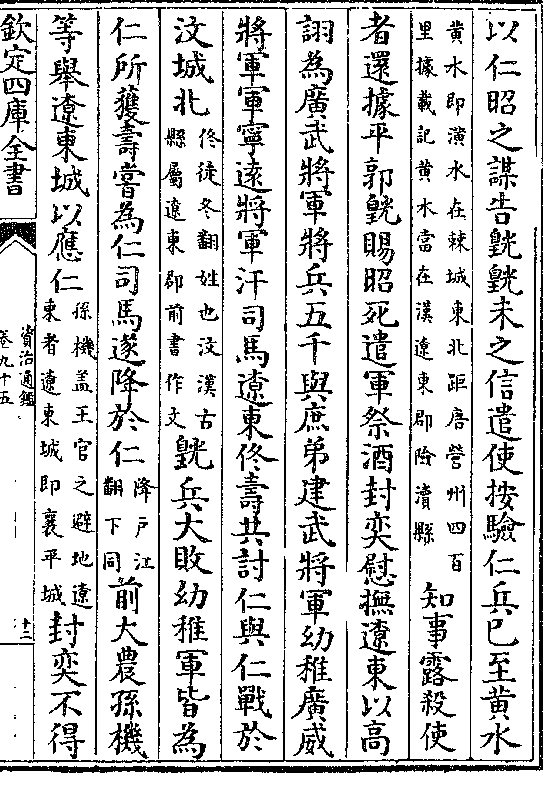 以仁昭之謀告皝皝未之信遣使按驗仁兵已至黄水
黄水即潢水在棘城東北距唐營州四百
里據載記黄水當在漢遼東郡險瀆縣
知事露殺使
者還據平郭皝賜昭死遣軍祭酒封奕慰撫遼東以高
詡為廣武將軍將兵五千與庶弟建武將軍幼稚廣威
將軍軍寧逺將軍汗司馬遼東佟壽共討仁與仁戰於
汶城北
佟徒冬翻姓也汶漢古
縣屬遼東郡前書作文
皝兵大敗幼稚軍皆為
仁所獲壽嘗為仁司馬遂降於仁
降戸江
翻下同
前大農孫機
等舉遼東城以應仁
孫機葢王官之避地遼
東者遼東城即襄平城
封奕不得
欽定四庫全書
資治通鑑
卷九十五
十二